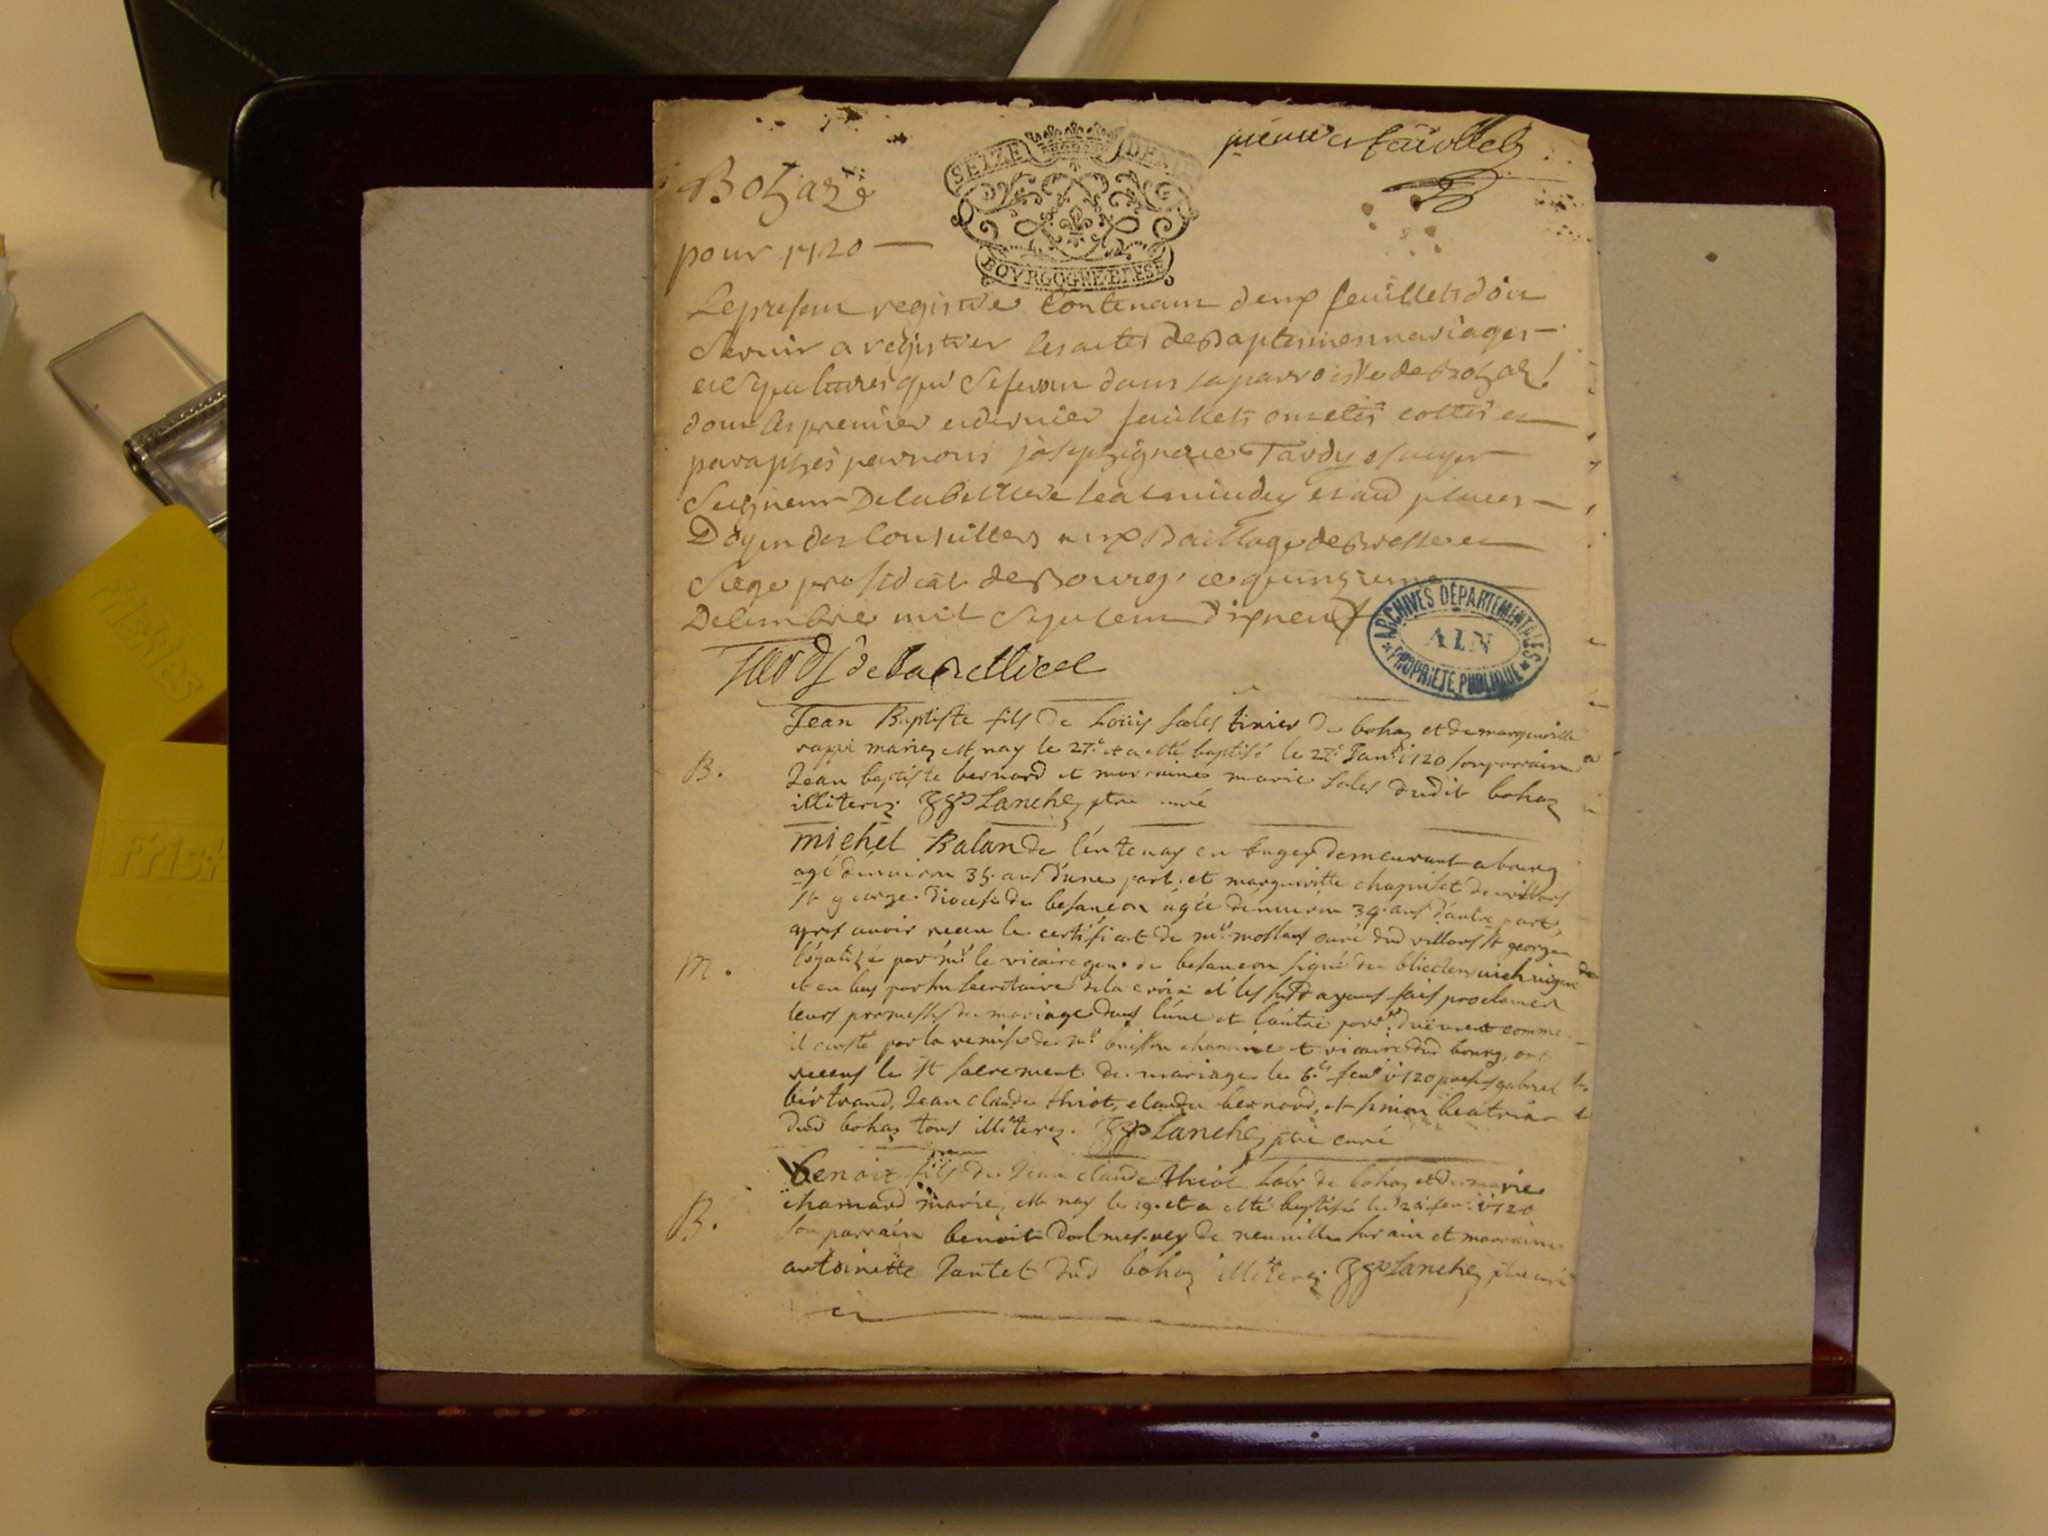 premier feüillet
SEIZE DEN
BOVRGOGNE BRESSE
Bohaz
pour 1720
Le present registre contenant deux feuillets doit
servir a registrer les actes de Baptesmes mariages
et sepultures qui se feront dans la parroisse de Bohaz
dont les premier et dernier feuillets ont etés cottés et
paraphés par nous joseph ignace Tardy escuyer
Seigneur De la
Doyen des Conseillers aux Bailliage de Bresse et
Siege presidial de Bourg, ce quinzieme
Decembre mil sept cent dixneuf
Tardy de la
ARCHIVES DÉPARTEMENTALES
AIN
PROPRIÉTÉ PUBLIQUE
Jean Baptiste fils de Loüis Sales de bohaz et de margueritte
mariez est nay le 27.e et a esté baptisé le Janr 1720 son parrain
B.
Jean baptiste bernard et marraine marie Sales dudit bohaz
illiterez. Planchez ptre curé
michel Balan de lentenay en bugey demeurant a bourg
agé denviron 35. ans d'une part. et margueritte de villars
st george diocese de besancon agée denviron 34. ans d'autre part,
apres avoir receu le certificat de mr curé dud villars st george
M.
légalizé par mr le vicaire gen. de besancon signé
et en bas par son secretaire de la croix et les susd ayans fais proclamer
leurs promesses de mariage dans l'une et l'autre duëment comme
il conste par la remise de mr chanoine et vicaire dud bourg, ont
receus le st sacrement de mariage le 6.e fevr 1720 gabriel
bertrand, Jean claude thiot, claude bernard, et simon
dud bohaz tous illiterez. Planchez ptre curé
benoit fils de Jean claude thiot labr de bohaz et de marie
charnard mariez, est nay le 19. et a esté baptisé le fevr. 1720
B.
son parrain benoit de neuville sur ain et marraine
antoinette Jantet dud bohaz illiterez Planchez ptre curé
Friskies
Frisk